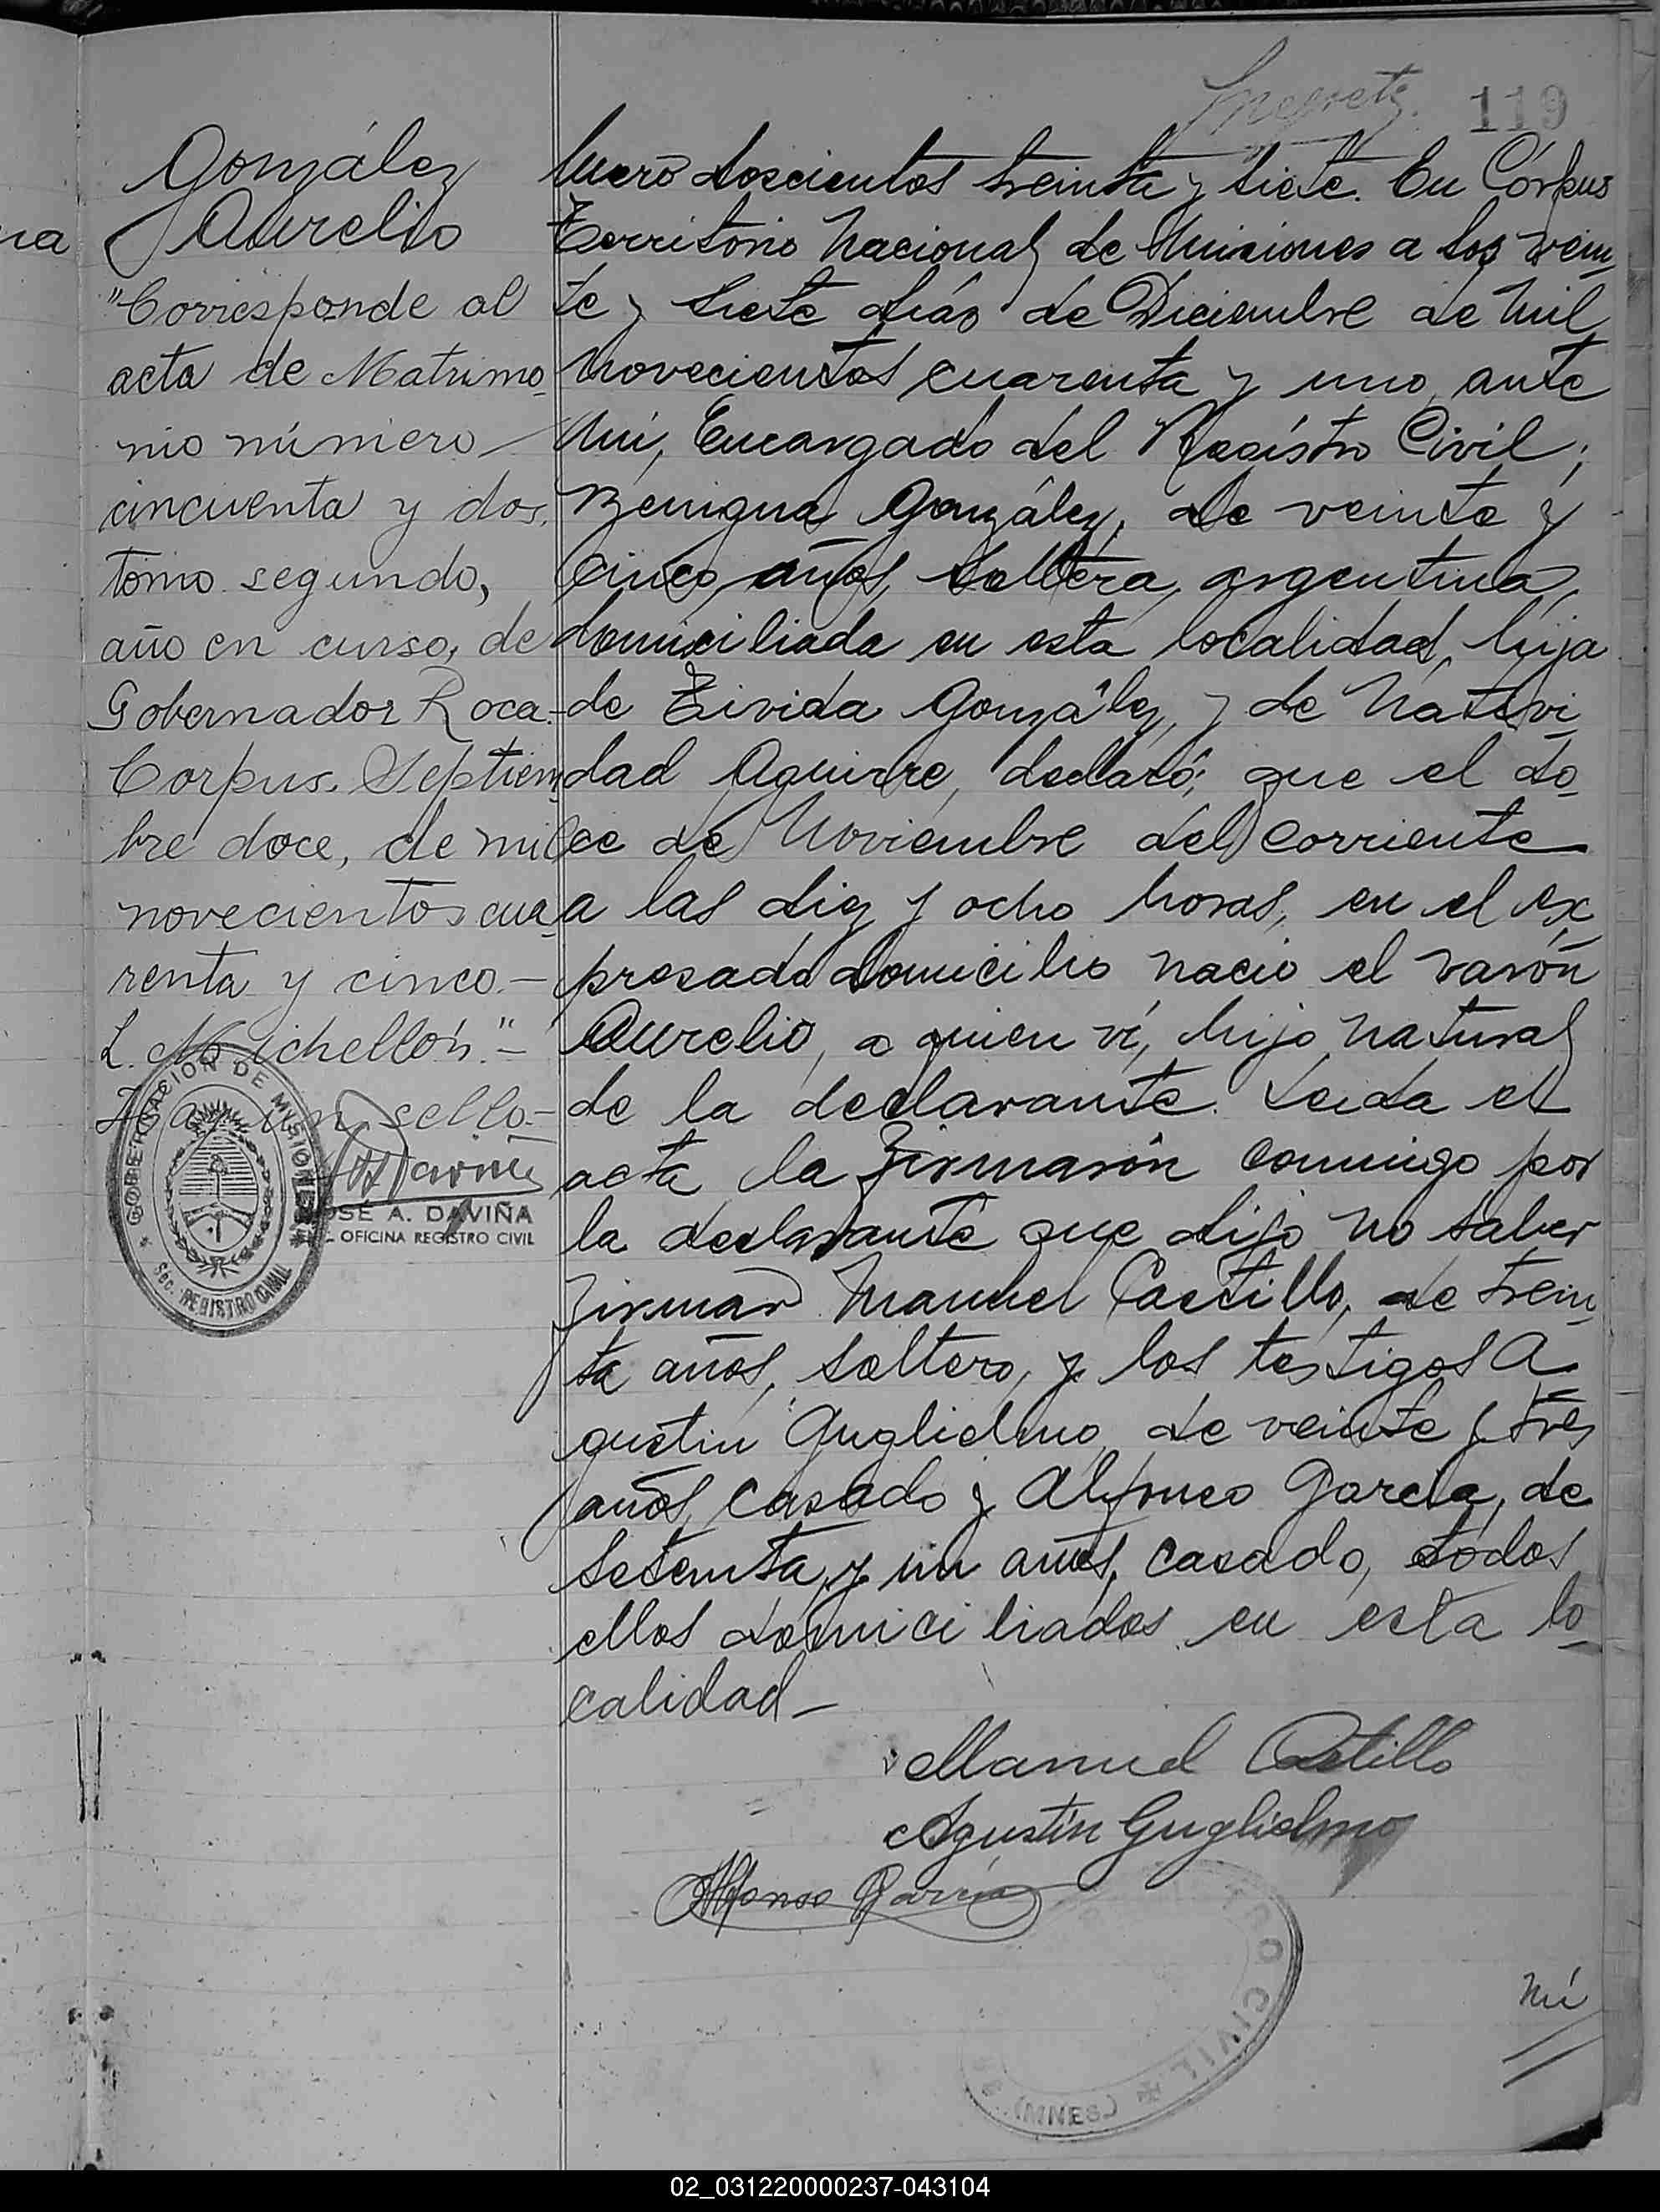 119
ra
González
Aurelio
"Corresponde al
acta de Matrimo-
nio número
cincuenta y dos,
tomo segundo,
año en curso, de
Gobernador Roca.-
Corpus. Septiem-
bre doce, de mil
novecientos cua-
renta y cinco.-
L. Michellón."-
Hay un sello.-
GOBERNACION DE MISIONES
SEC. REGISTRO CIVIL
JOSÉ A. DAVIÑA
OFICINA REGISTRO CIVIL
Número doscientos treinta y siete. En Córpus
Territorio Nacional de Misiones a los vein-
te y siete días de Diciembre de mil
novecientos cuarenta y uno, ante
mí, Encargado del Registro Civil;
Benigna González, de veinte y
cinco años, soltera, argentina,
domiciliada en esta localidad, hija
de Zivida González, y de Nativi-
dad Aguirre, declaró; que el do-
ce de Noviembre del corriente
a las diez y ocho horas, en el ex-
presado domicilio nacio el varón
Aurelio, a quien ví, hijo natural
de la declarante. Leida el
acta la firmarón conmigo por
la declarante que dijo no saber
firmar Manuel Castillo, de trein-
ta años, soltero, y los testigos A-
gustin Guglielmo, de veinte y tres
años, casado y Alfonso García, de
setenta y un años, casado, todos
ellos domiciliados en esta lo-
calidad-
Manuel Castillo
Agustín Guglielmo
Alfonso García
RO CIVIL
(MNES.)
Mí
02_031220000237-043104